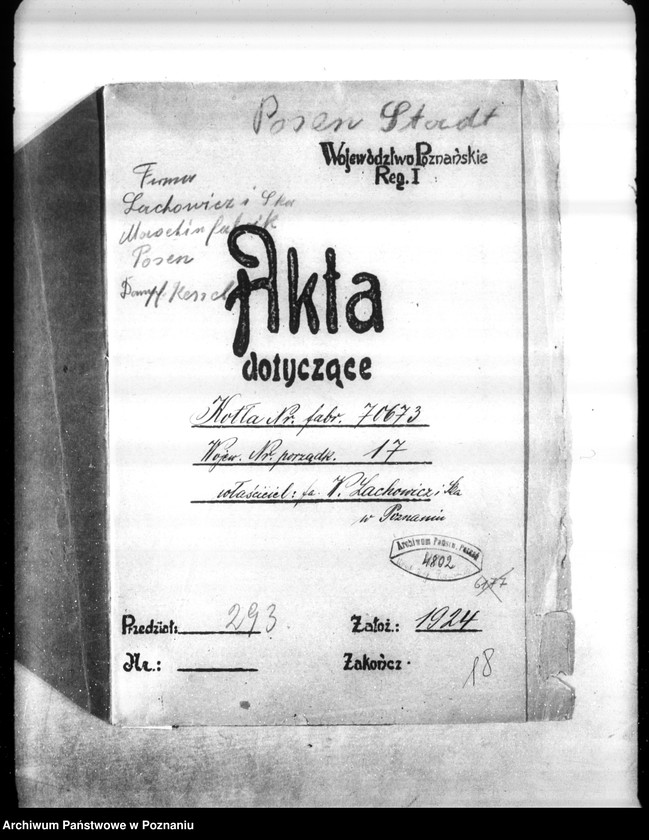 Posen Stadt
Województwo Poznańskie
Reg. I
Firma
Lachowicz i Ska
Maschinfabrik
Posen
Dampf Kessel
Akta
dotyczące
Kotła Nr. fabr. 70673
Wojew. Nr. porządk. 17
właściciel: fa. W. Lachowicz i Ska
w Poznaniu
Archiwum Państw. Poznań
4802
Przedział: 293
Założ.: 1924
Nr.:
Zakończ.
18
Archiwum Państwowe w Poznaniu